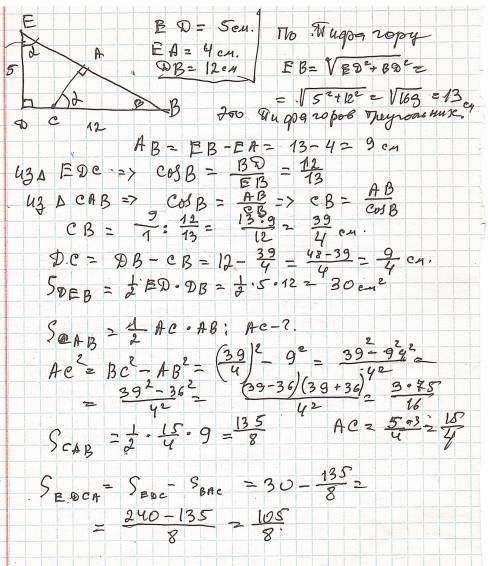 E
2
A
5
2
B
D C
12
ED = 5 см.
EA = 4 см.
DB = 12 см
По Пифагору
EB = √ED² + BD² =
= √5² + 12² = √169 = 13 см
Это Пифагоров треугольник.
AB = EB - EA = 13 - 4 = 9 см
из △ EDC => cosB = BD/EB = 12/13
из △ CAB => cosB = AB/CB => CB = AB/cosB
CB = 9/1 : 12/13 = 13·9/12 = 39/4 см.
D.C = DB - CB = 12 - 39/4 = 48-39/4 = 9/4 см.
S DEB = 1/2 ED · DB = 1/2 · 5 · 12 = 30 см²
S CAB = 1/2 AC · AB; AC - ?
AC² = BC² - AB² = (39/4)² - 9² = 39² - 9²4²/4² =
= 39² - 36²/4² = (39-36)(39+36)/4² = 3·75/16
S CAB = 1/2 · 15/4 · 9 = 135/8 AC = 5·3/4 = 15/4
S EDCA = S EDC - S BAC = 30 - 135/8 =
= 240-135/8 = 105/8.